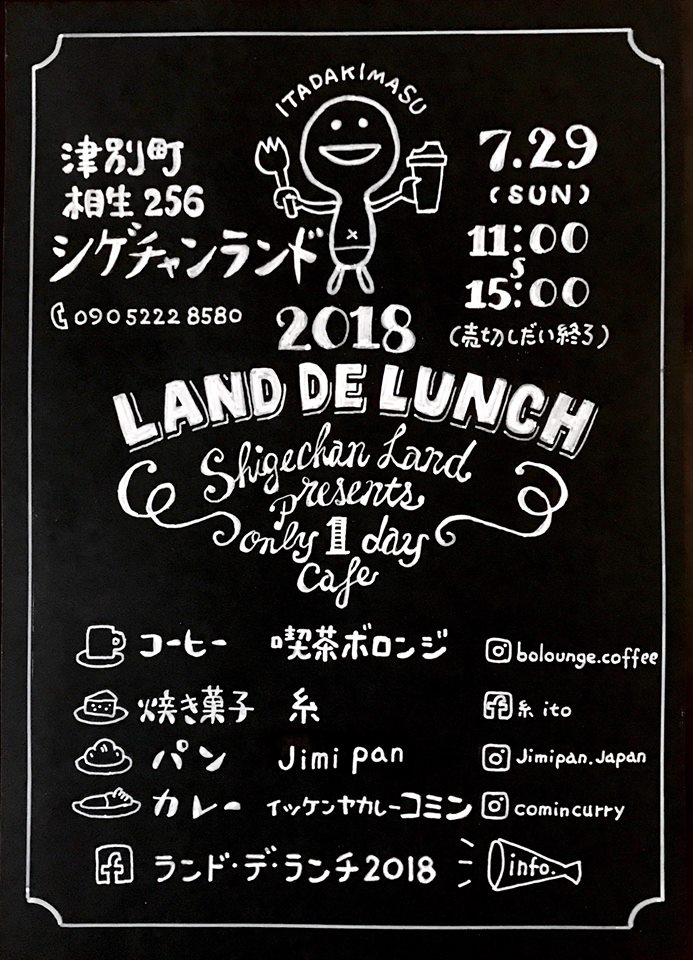 ITADAKIMASU
津別町
相生 256
シゲチャンランド
090 5222 8580
7.29
(SUN)
11:00
S
15:00
(売切しだい終了)
2018
LAND DE LUNCH
Shigechan Land
Presents
only 1 day
Cafe
コーヒー 喫茶ボロンジ bolounge.coffee
焼き菓子 糸 糸 ito
パン Jimi pan Jimipan.Japan
カレー イッケンヤカレーコミン comincurry
ランド・デ・ランチ2018 info.